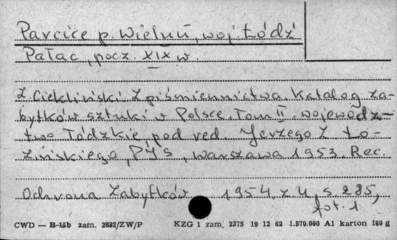 Parcice p. Wieluń, woj Łódź
Pałac, pocz. XIX w.
Z. Ciekliński Z piśmiennictwa. Katalog za-
bytków sztuki w Polsce. Tom II. wojewódz-
two Łódzkie, pod red. Jerzego Z Ło-
zińskiego, PIS, warszawa 1953. Rec.
Ochrona Zabytków 1954, z 4, s. 285,
fot. 1
CWD — B-15b zam. 2623/ZW/P KZG 1 zam. 2375 19 12 62 1.570.000 A1 karton 160 g